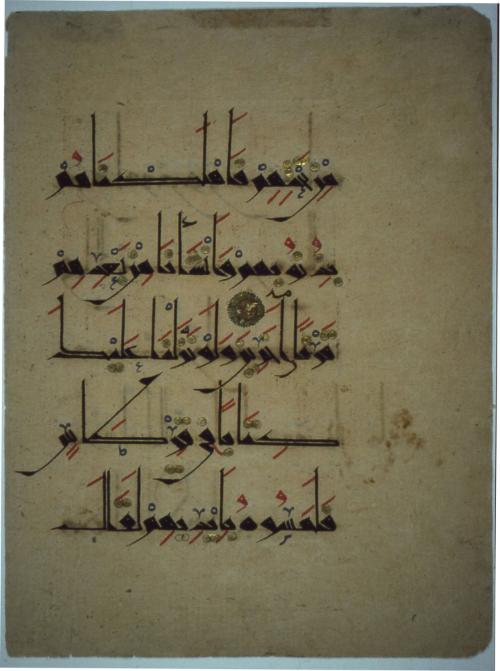 مِنْ تَحْتِهِمْ فَأَهْلَكْنَاهُمْ
بِذُنُوبِهِمْ وَأَنْشَأْنَا مِنْ بَعْدِهِمْ
قَرْنًا آخَرِينَ وَلَوْ نَزَّلْنَا عَلَيْكَ
كِتَابًا فِي قِرْطَاسٍ
فَلَمَسُوهُ بِأَيْدِيهِمْ لَقَالَ